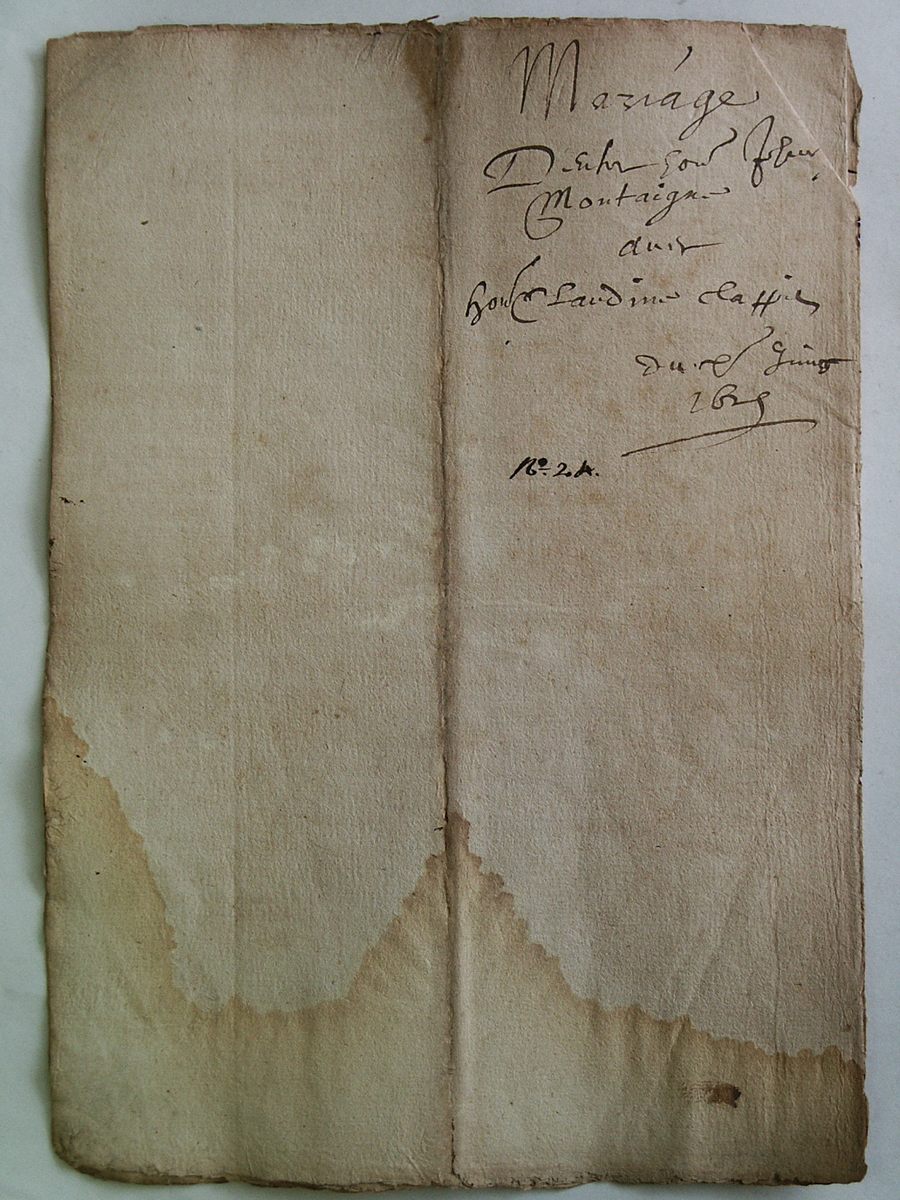 Mariage
D'entre hon^e Jehan
Montaigne
avec
hon^e Claudine Clappie
du x^e Juing
162
N^o. 24.